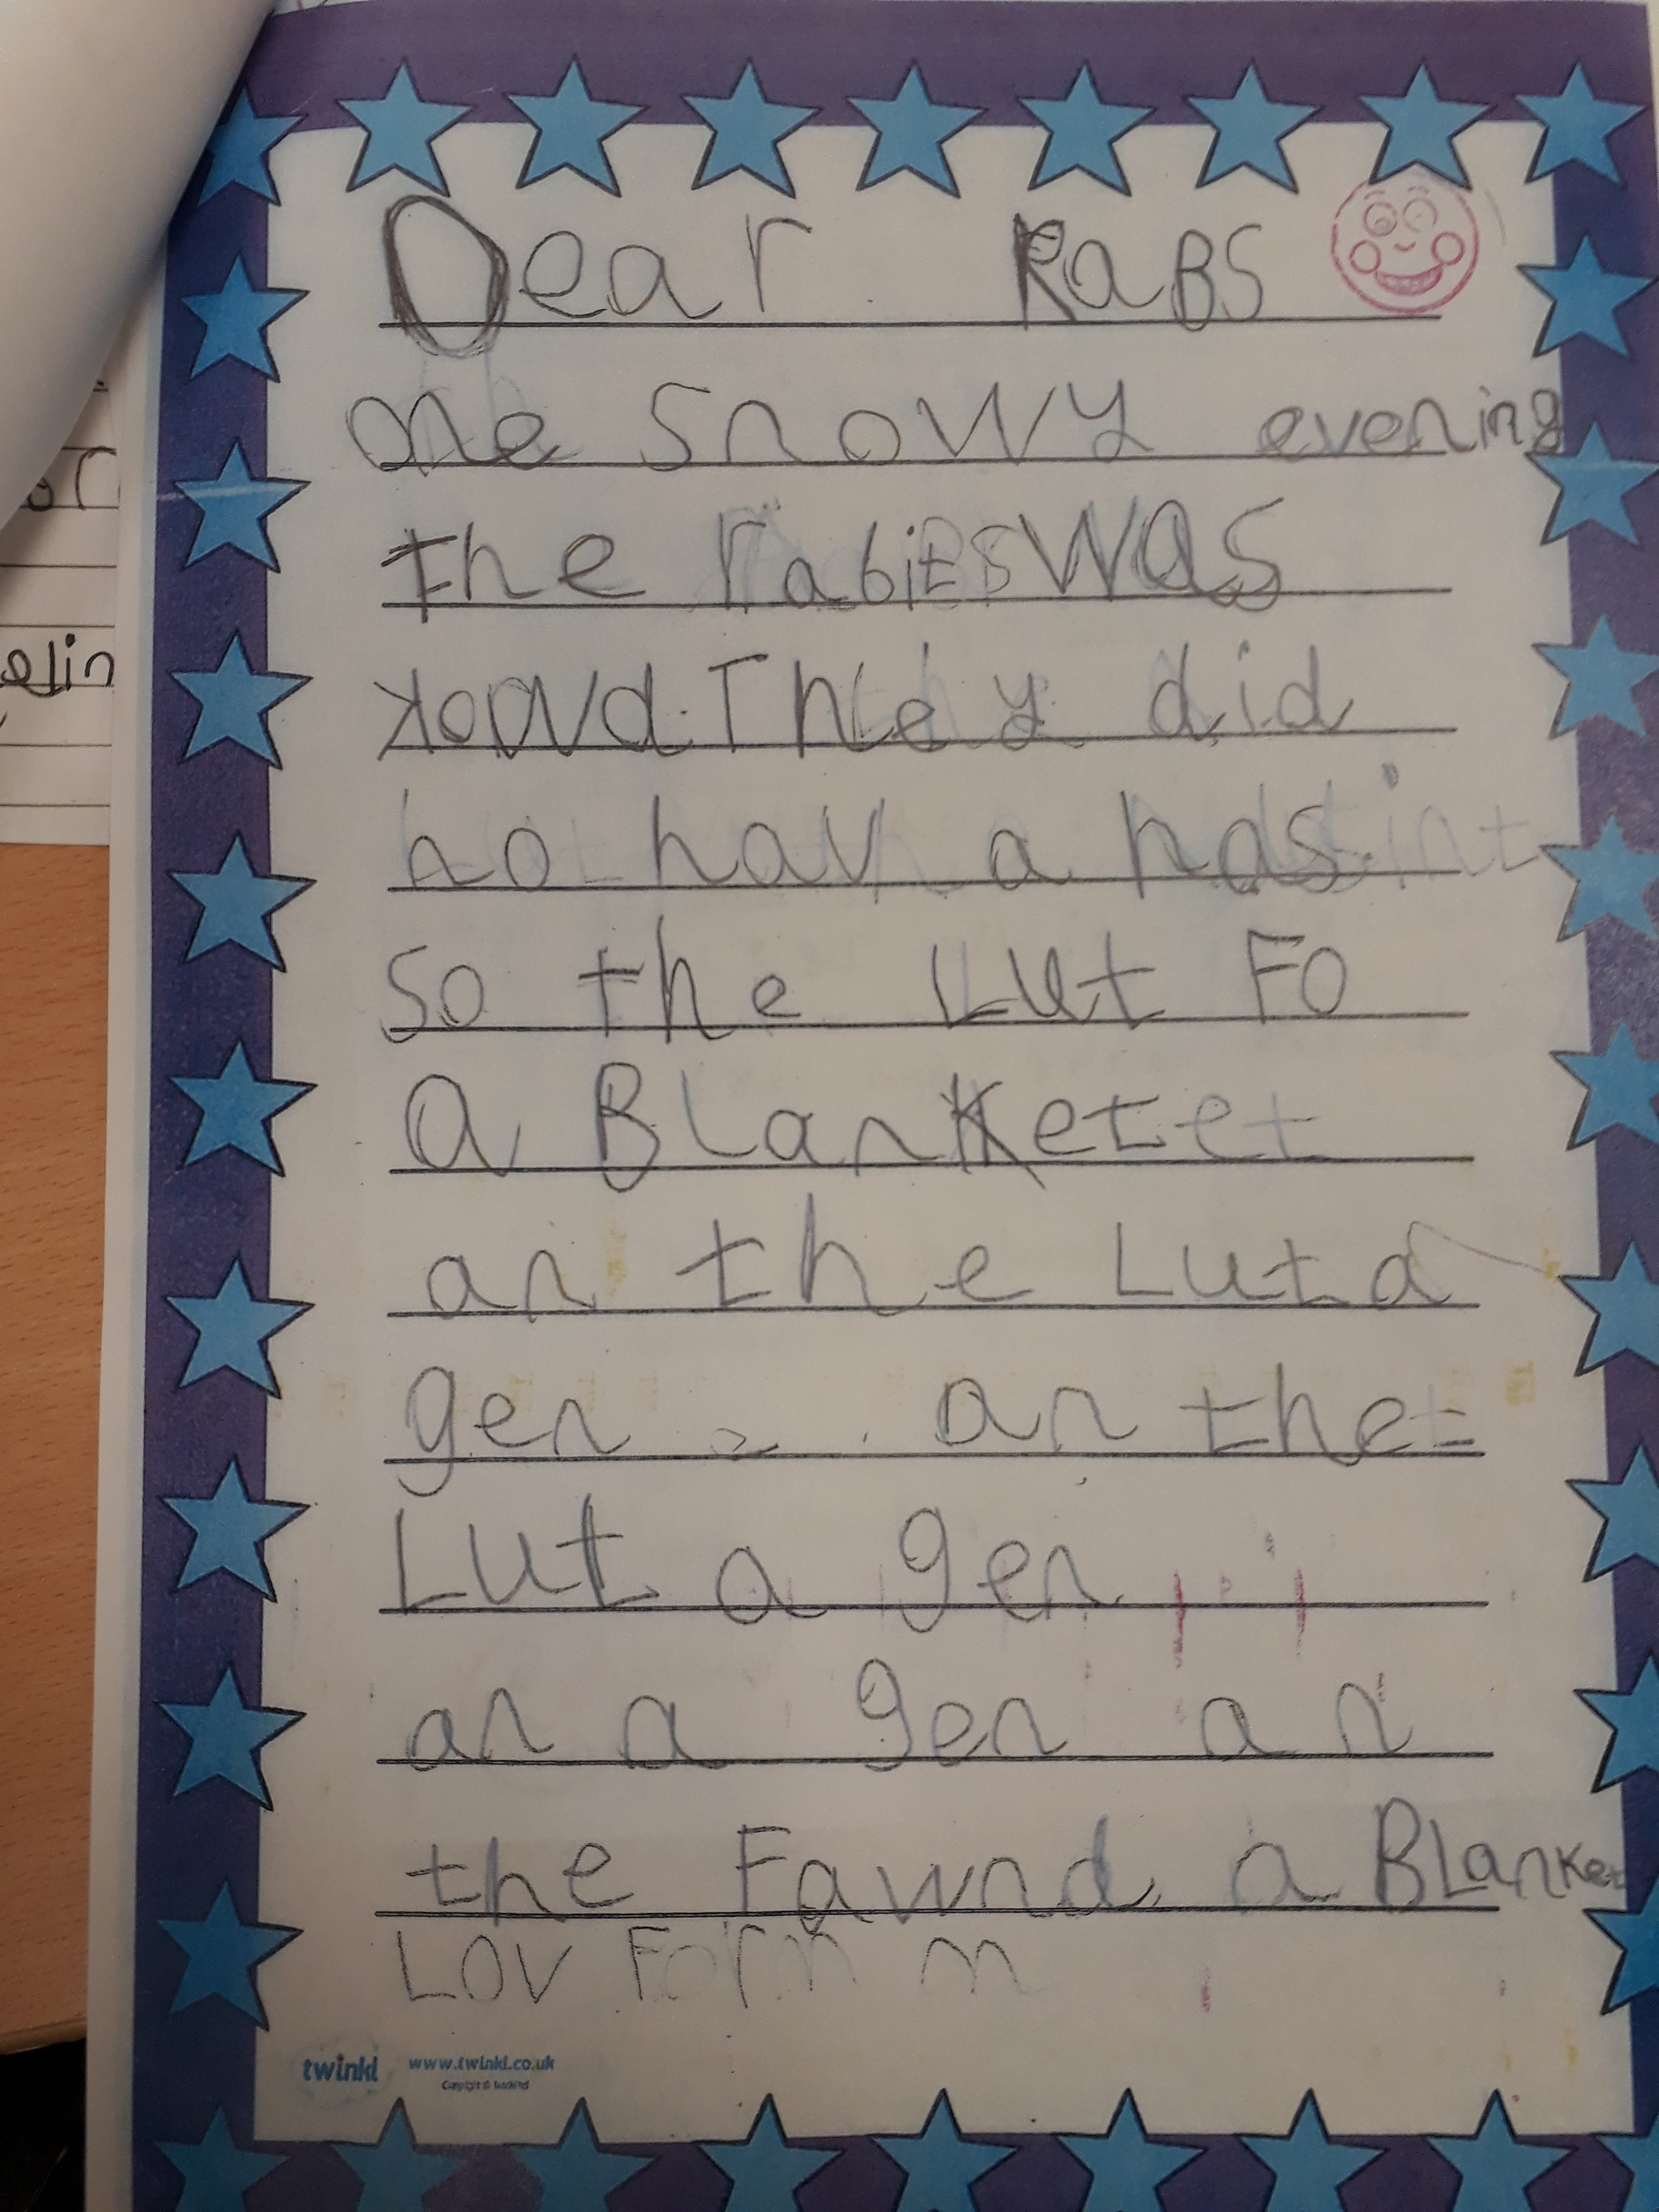 Dear RaBS
one snowy evening
the rabits was
kowd. They did
no hav a has.
So the LUt FO
a BLanket
an the Luta
gen an the
LUt a gen
an a gen an
the Fawnd a BLanket
Lov Form m
twinkl www.twinkl.co.uk
or
elin